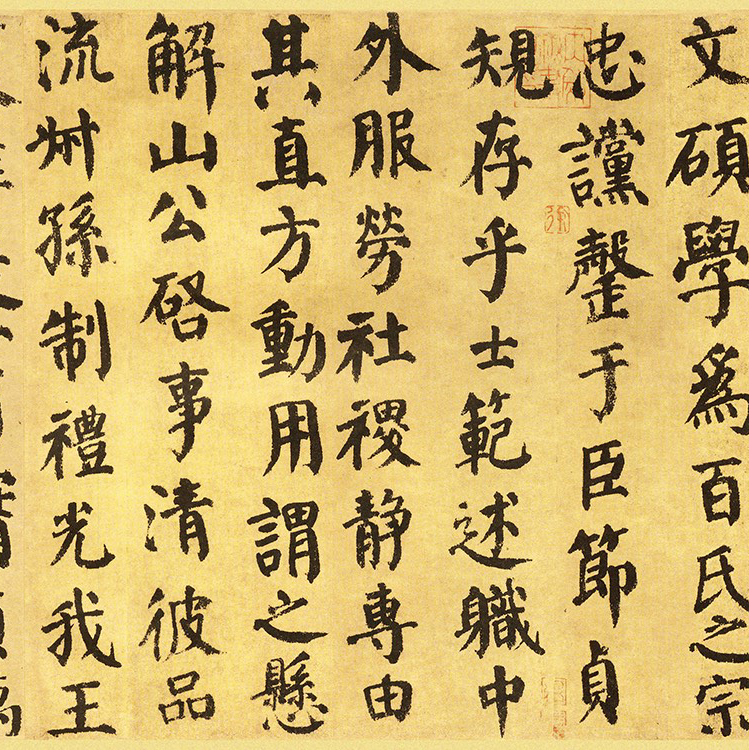 文碩學爲百氏之宗
忠讜罄于臣節貞
規存乎士範述職中
外服勞社稷静專由
其直方動用謂之懸
解山公啓事清彼品
流叔孫制禮光我王